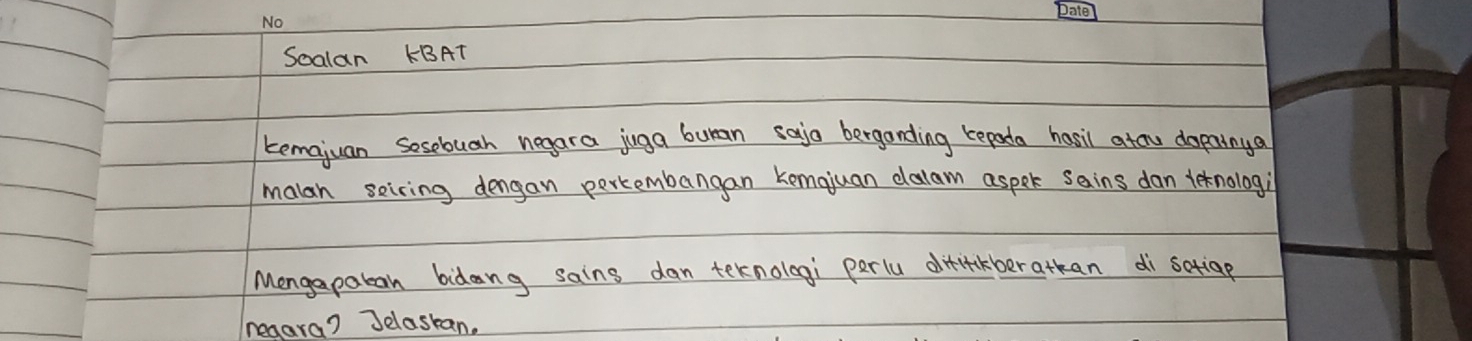 No
Date
Soalan KBAT
kemajuan sesebuah negara juga bukan saja berganding kepada hasil atau dapatnya
malah seiring dengan perkembangan kemajuan dalam aspek sains dan teknologi
Mengapakah bidang sains dan teknologi perlu dititikberatkan di setiap
negara? Jelaskan.